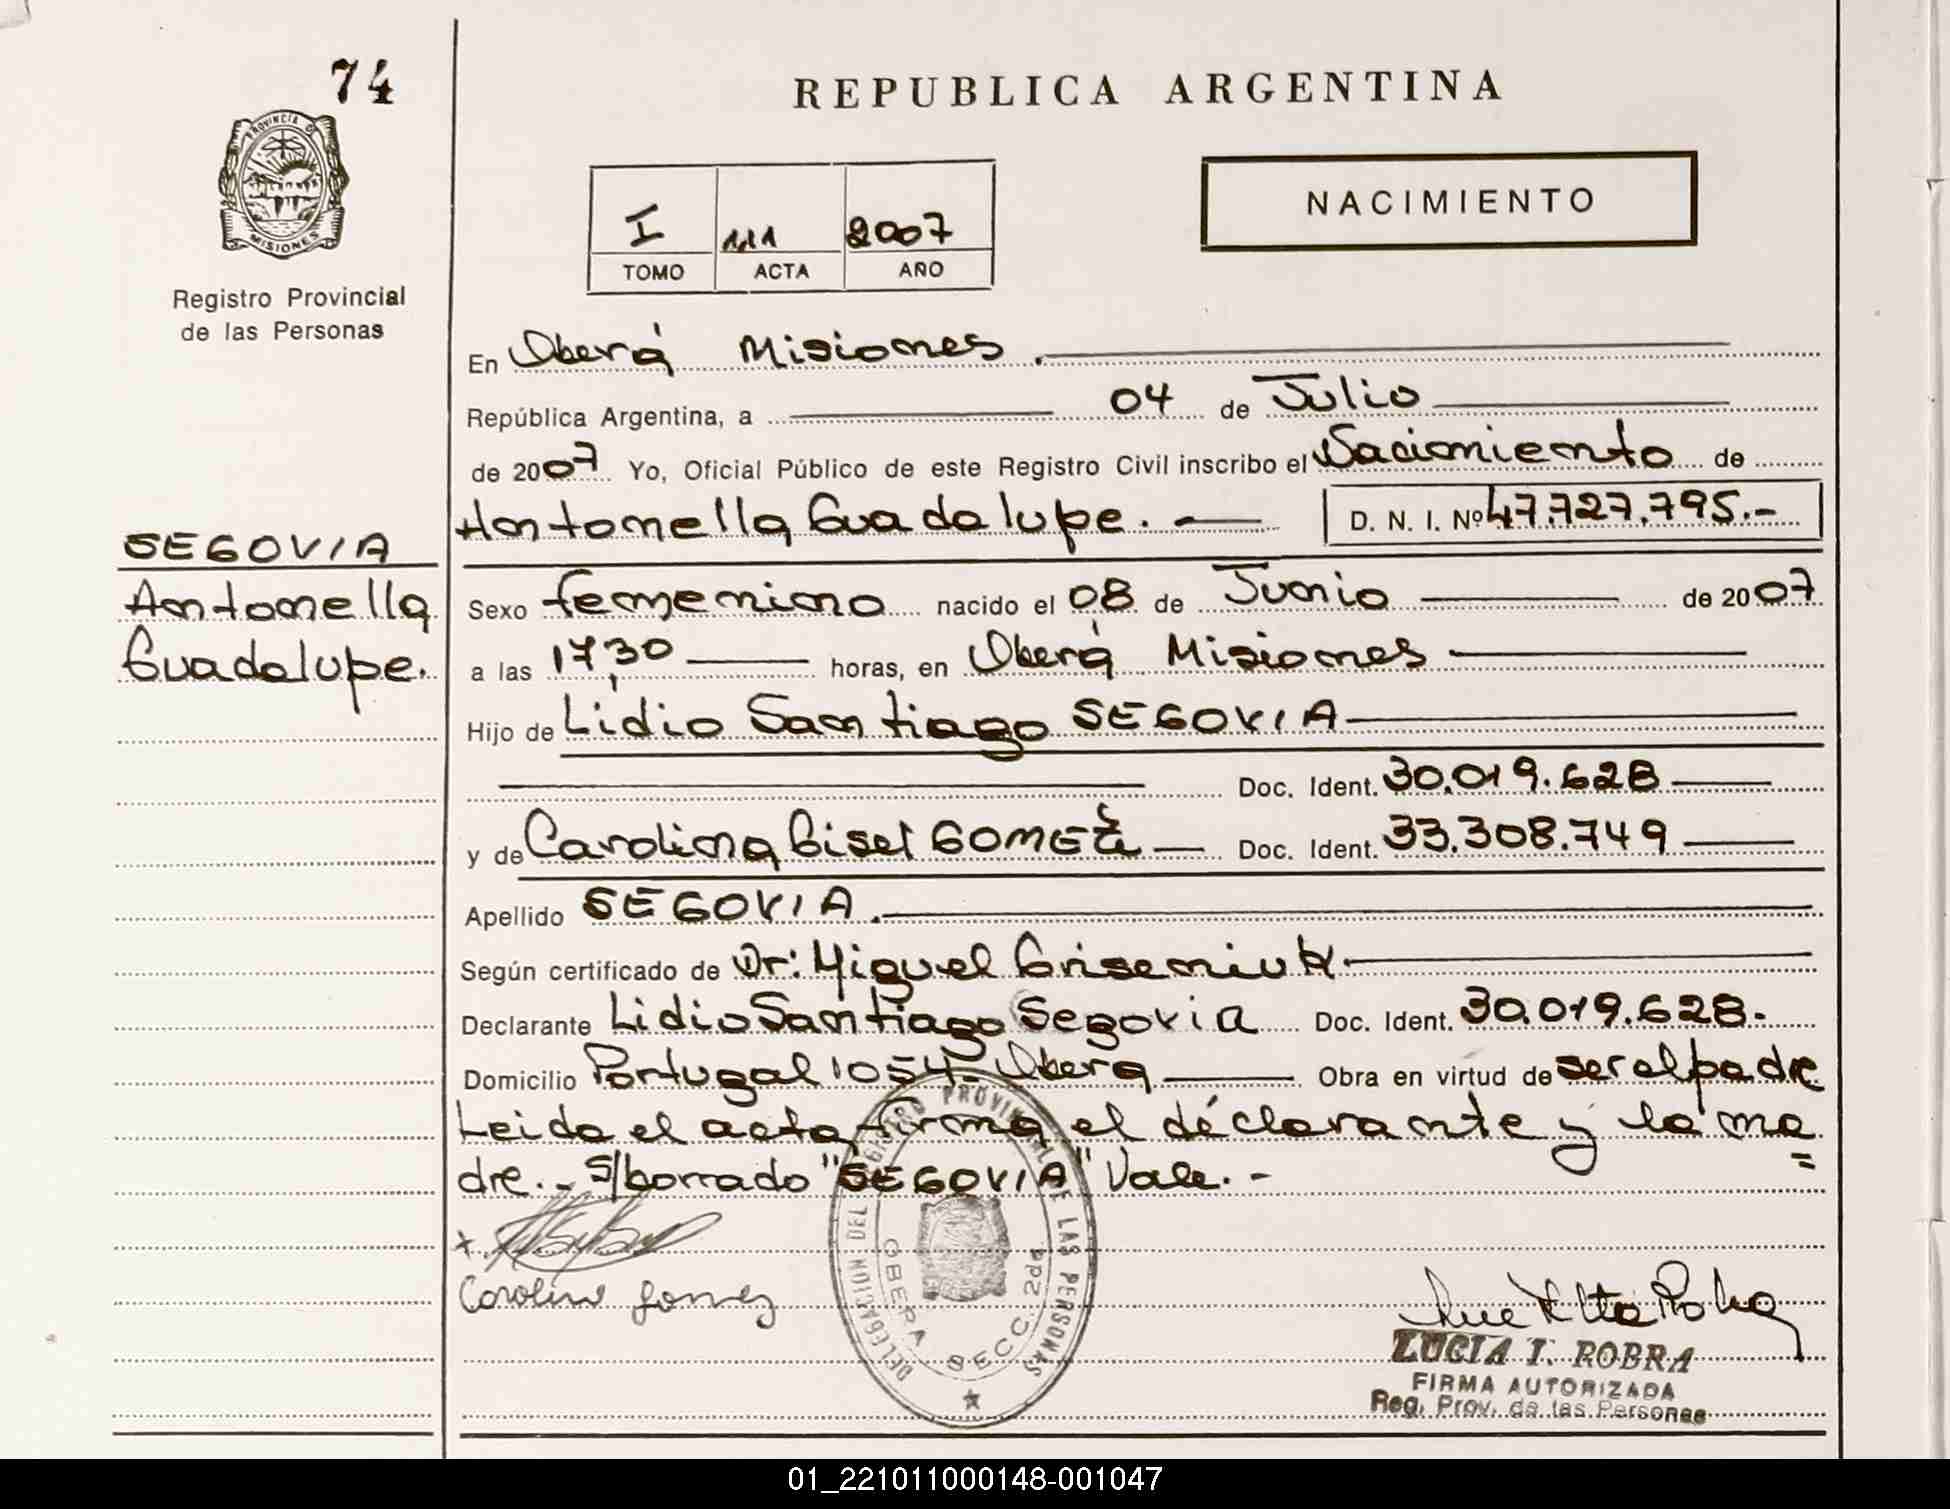 74
REPUBLICA ARGENTINA
PROVINCIA D
MISIONES
Registro Provincial
de las Personas
I 111 2007
TOMO ACTA AÑO
NACIMIENTO
En Oberá Misiones.
República Argentina, a 04 de Julio
de 2007 Yo, Oficial Público de este Registro Civil inscribo el Nacimiento de
Antonella Guadalupe. D. N. I. Nº 47.727.795.-
SEGOVIA
Antonella
Guadalupe.
Sexo femenino nacido el 08 de Junio de 2007
a las 17,30 horas, en Oberá Misiones
Hijo de Lidio Santiago SEGOVIA
Doc. Ident. 30.019.628
y de Carolina Gisel GOMEZ Doc. Ident. 33.308.749
Apellido SEGOVIA.
Según certificado de Dr: Miguel Griseniuk.
Declarante Lidio Santiago Segovia Doc. Ident. 30.019.628.
Domicilio Portugal 1054- Obera Obra en virtud de ser el padre
Leida el acta firma el déclarante y la ma
dre.- S/borrado "SEGOVIA" Vale.-
Carolina Gomez
DELEGACION DEL REGISTRO PROVINCIAL DE LAS PERSONAS
OBERA SECC. 2da
LUCIA I. ROBRA
FIRMA AUTORIZADA
Reg. Prov. de las Personas
01_221011000148-001047